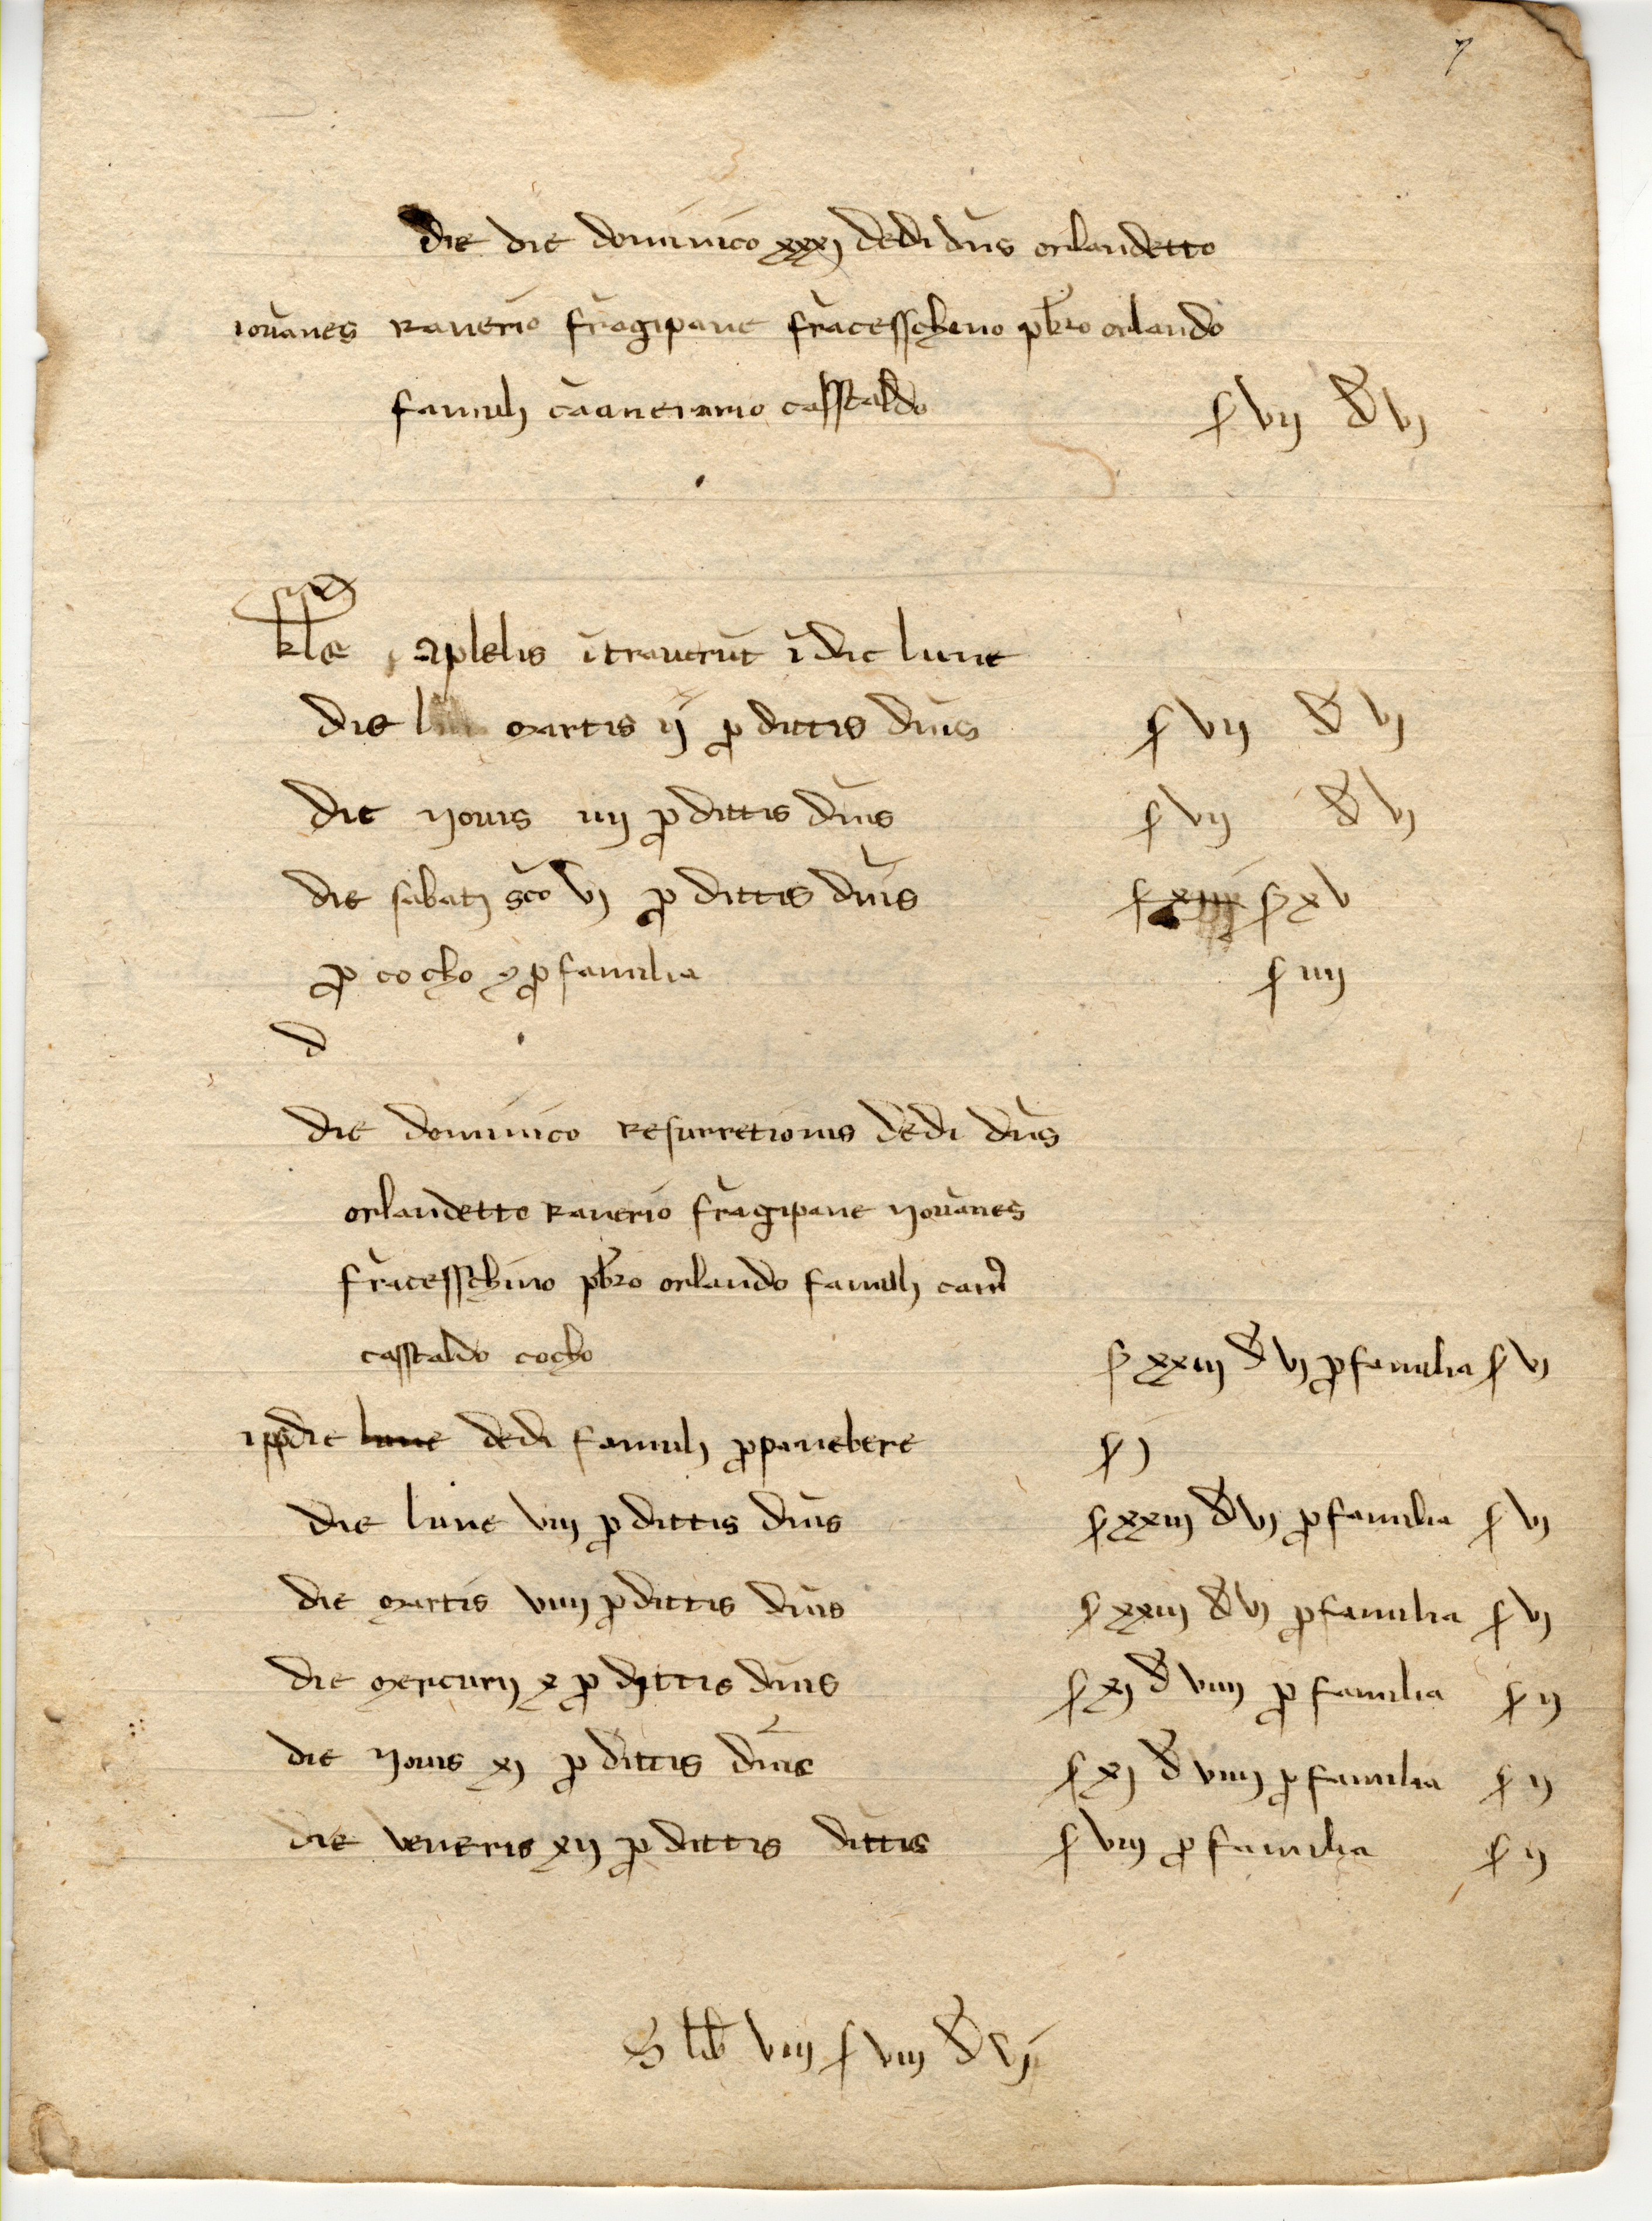 7
die die dominico xxxj dedi dn̄s orlandetto
iovānes Ranerio frāgipane frācesschino pb̄ro orlando
famulj cāanerario casstaldo ſ vij đ vj
kl̄e aplelis ītraverūt ī die lune
die martis ij p dittis dn̄is ſ vij đ vj
die yovis iiij p dittis dn̄is ſ vij đ vj
die sabatj sc̄o vj p dittis dn̄is ſ xiiij ſ xv
p cocho & p familia ſ iiij
d
die dominico resurretionis dedi dn̄s
orlandetto Ranerio frāgipane yovānes
frācesschino pb̄ro orlando famulj cam̄
casstaldo cocho ſ xxiij đ vj p familia ſ vj
ipp̄die lune dedi famulj p panebere ſ j
die lune viij p dittis dn̄is ſ xxiij đ vj p familia ſ vj
die martis viiij p dittis dn̄is ſ xxiij đ vj p familia ſ vj
die mercurij x p dittis dn̄is ſ xj đ viiij p familia ſ ij
die yovis xj p dittis dn̄is ſ xj đ viiij p familia ſ ij
die veneris xij p dittis dittis ſ viij p familia ſ ij
S lib̄ viij ſ viij đ vj